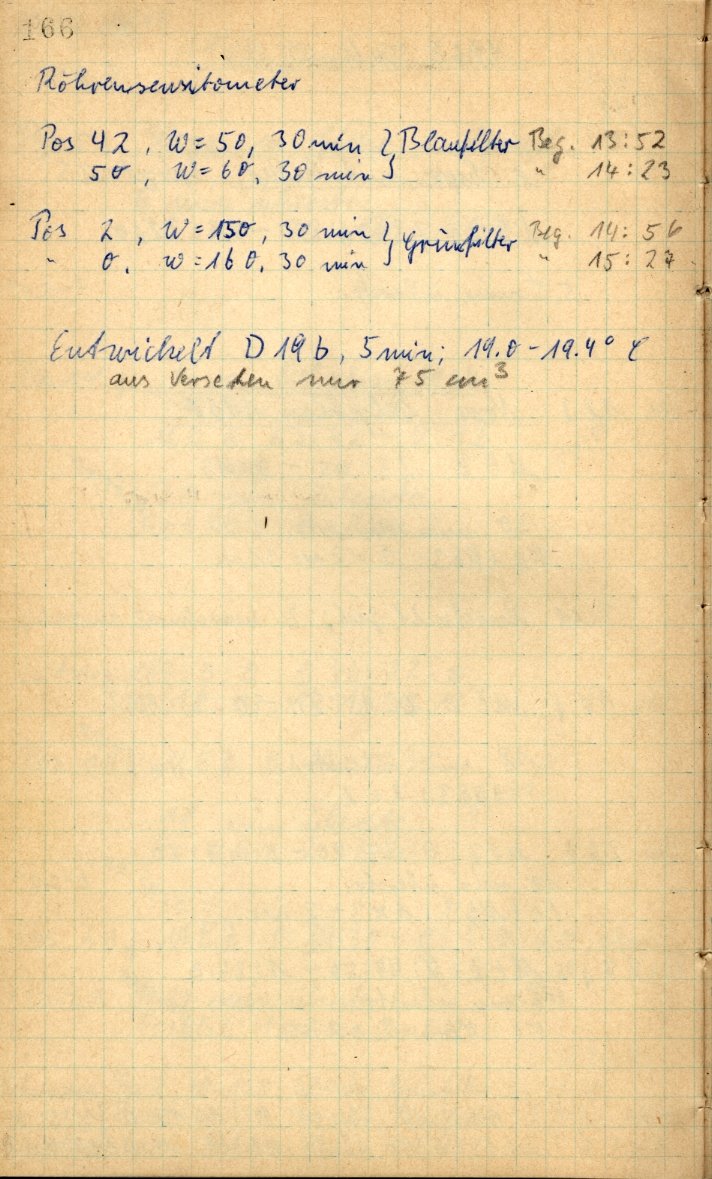 166
Röhrensensitometer
Pos 42, W = 50, 30 min } Blaufilter Beg. 13:52
50, W = 60, 30 min } " 14:23
Pos 2, W = 150, 30 min } Grünfilter Beg. 14:56
" 0, W = 160, 30 min } " 15:27
Entwickelt D 19 b, 5 min; 19.0 - 19.4° C
aus Versehen nur 75 cm³